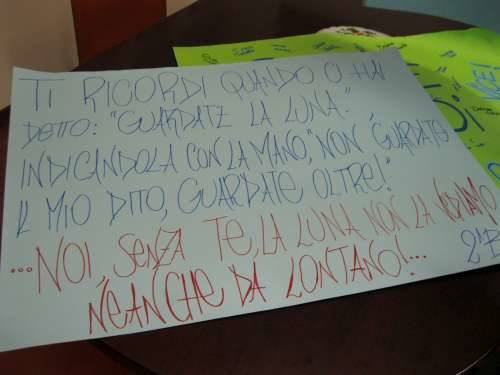 TI RICORDI QUANDO CI HAI
DETTO: "GUARDATE LA LUNA"
INDICANDOLA CON LA MANO, "NON GUARDATE
IL MIO DITO, GUARDATE OLTRE!"
...NOI, SENZA TE, LA LUNA NON LA VEDIAMO
NEANCHE DA LONTANO!...
2ªB